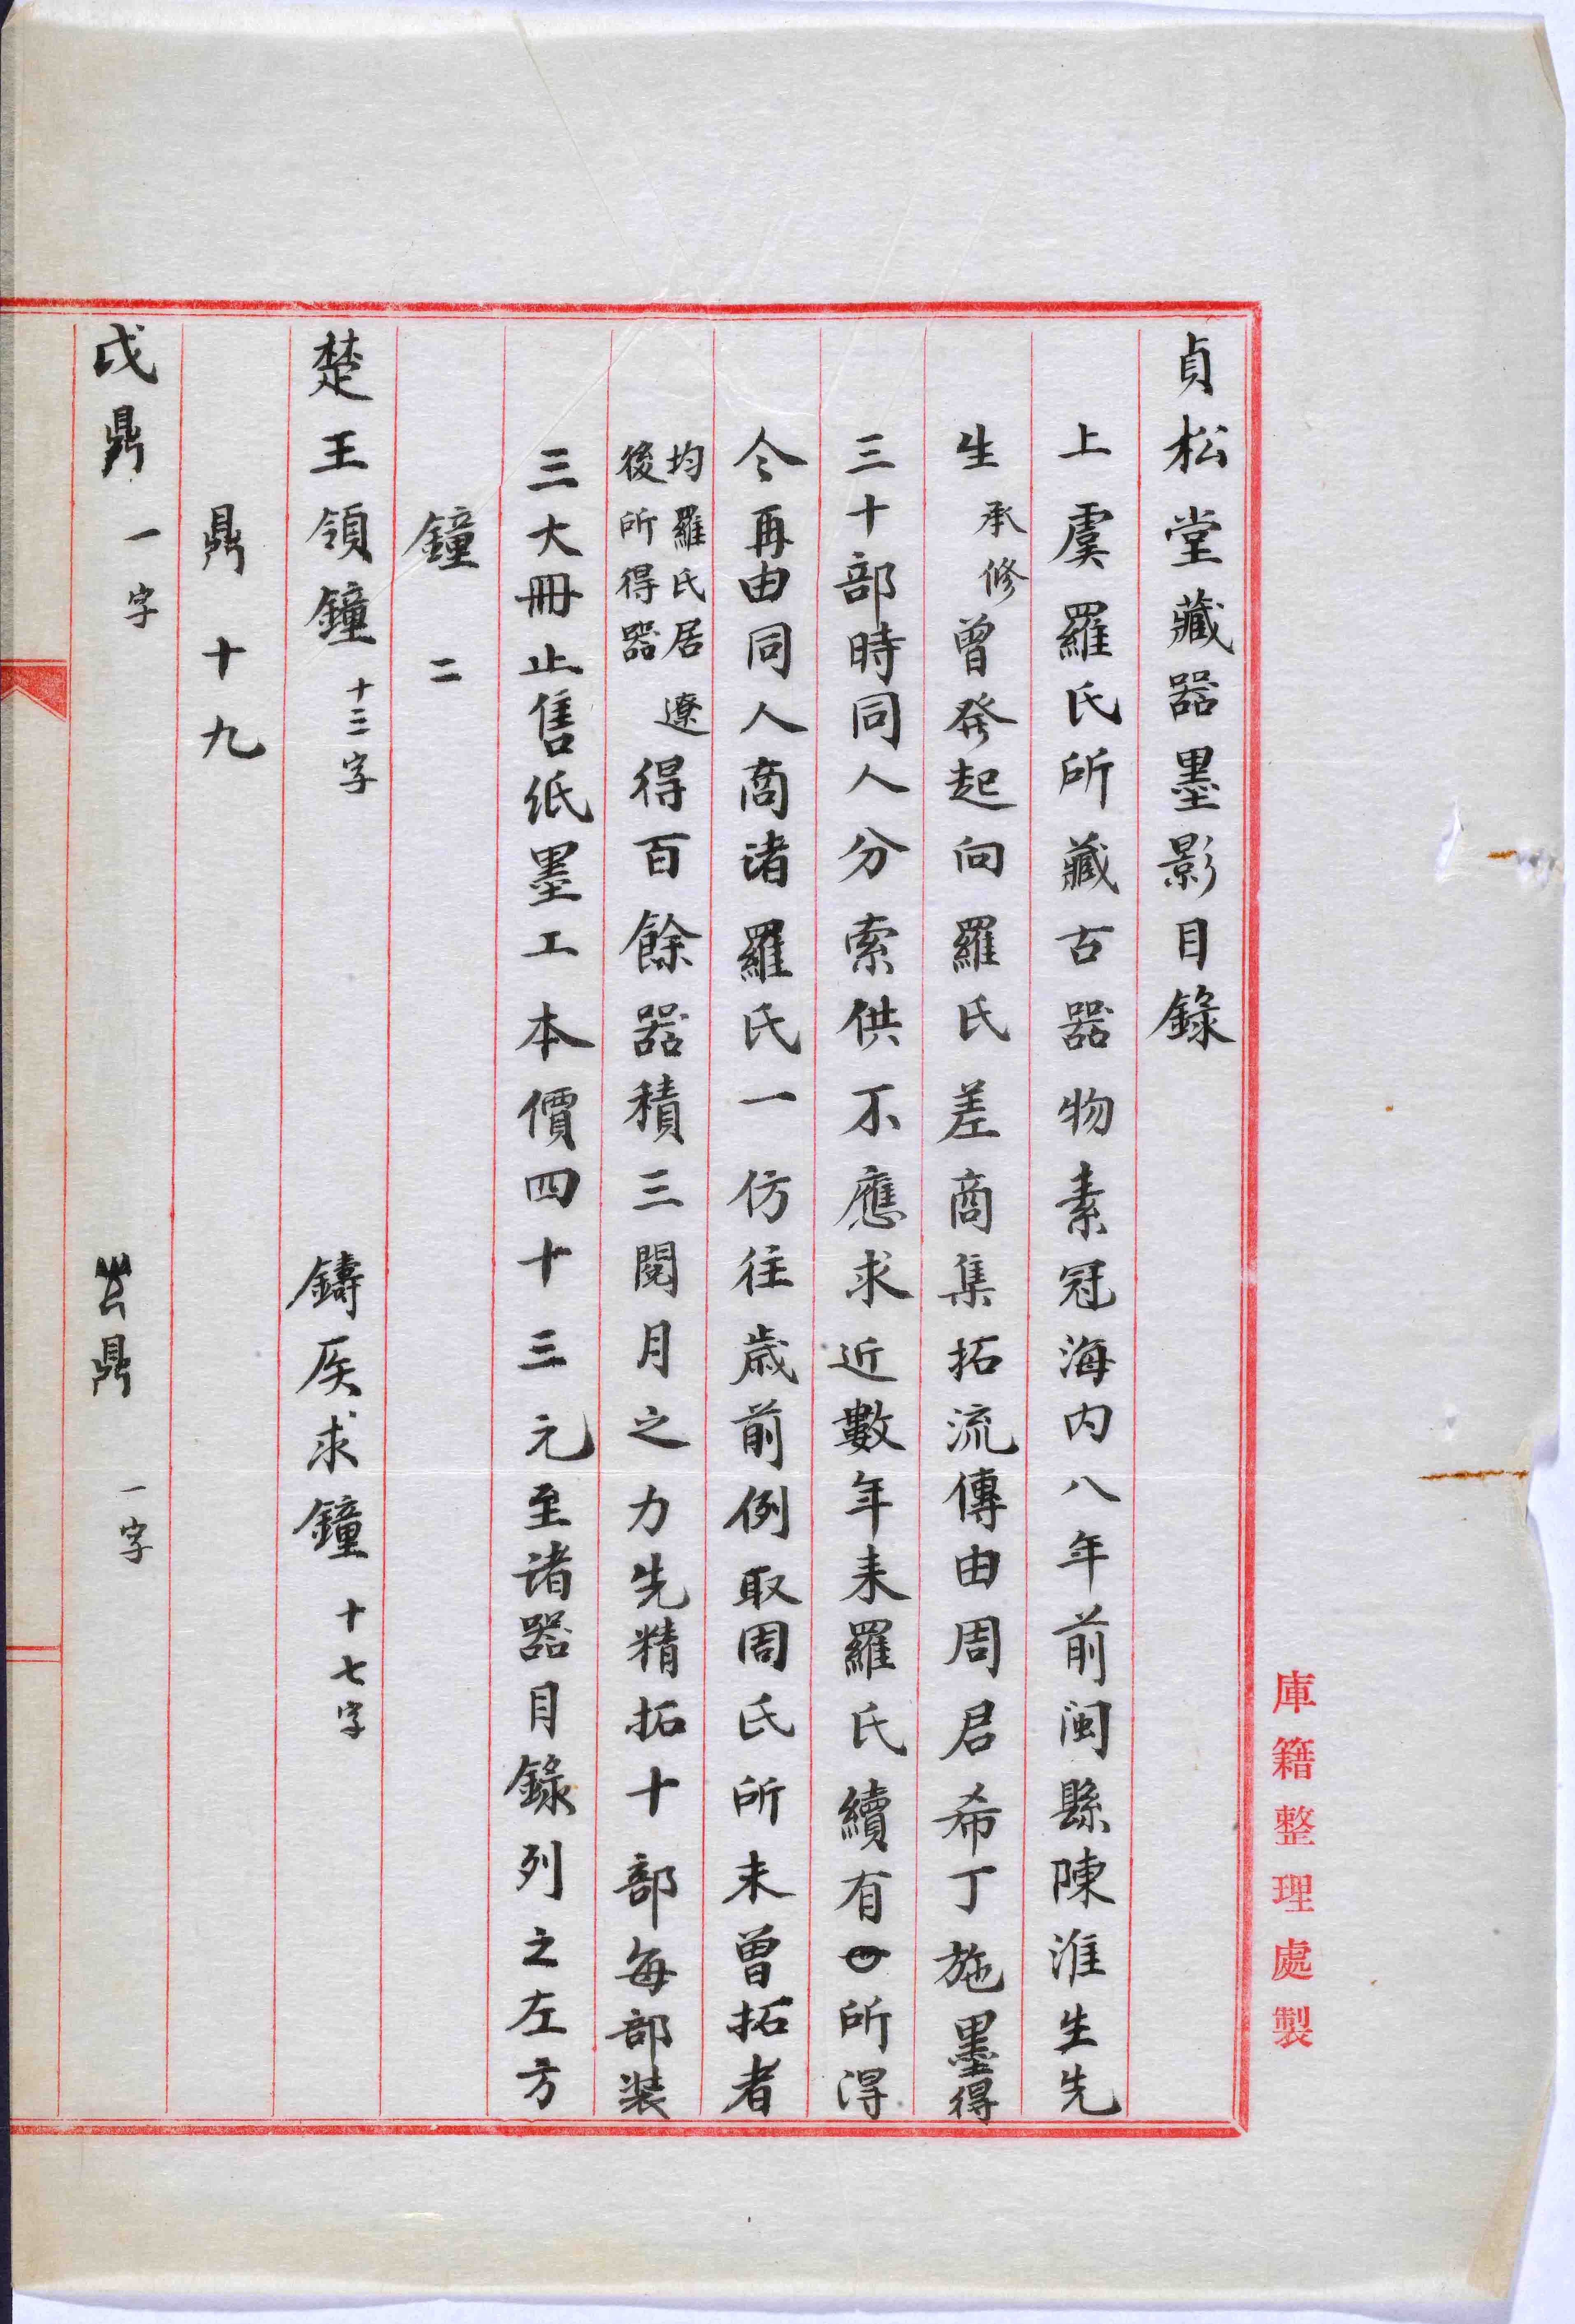 庫籍整理處製
貞松堂藏器墨影目錄
上虞羅氏所藏古器物素冠海內八年前閩縣陳淮生先
生承修曾發起向羅氏差商集拓流傳由周君希丁施墨得
三十部時同人分索供不應求近數年来羅氏續有所得
今再由同人商诸羅氏一仿往歲前例取周氏所未曾拓者
均羅氏居遼後所得器得百餘器積三閱月之力先精拓十部每部装
三大冊止售纸墨工本價四十三元至诸器目錄列之左方
鐘 二
楚王領鐘 十三字 鑄矦求鐘 十七字
鼎十九
戊鼎 一字 鼎 一字